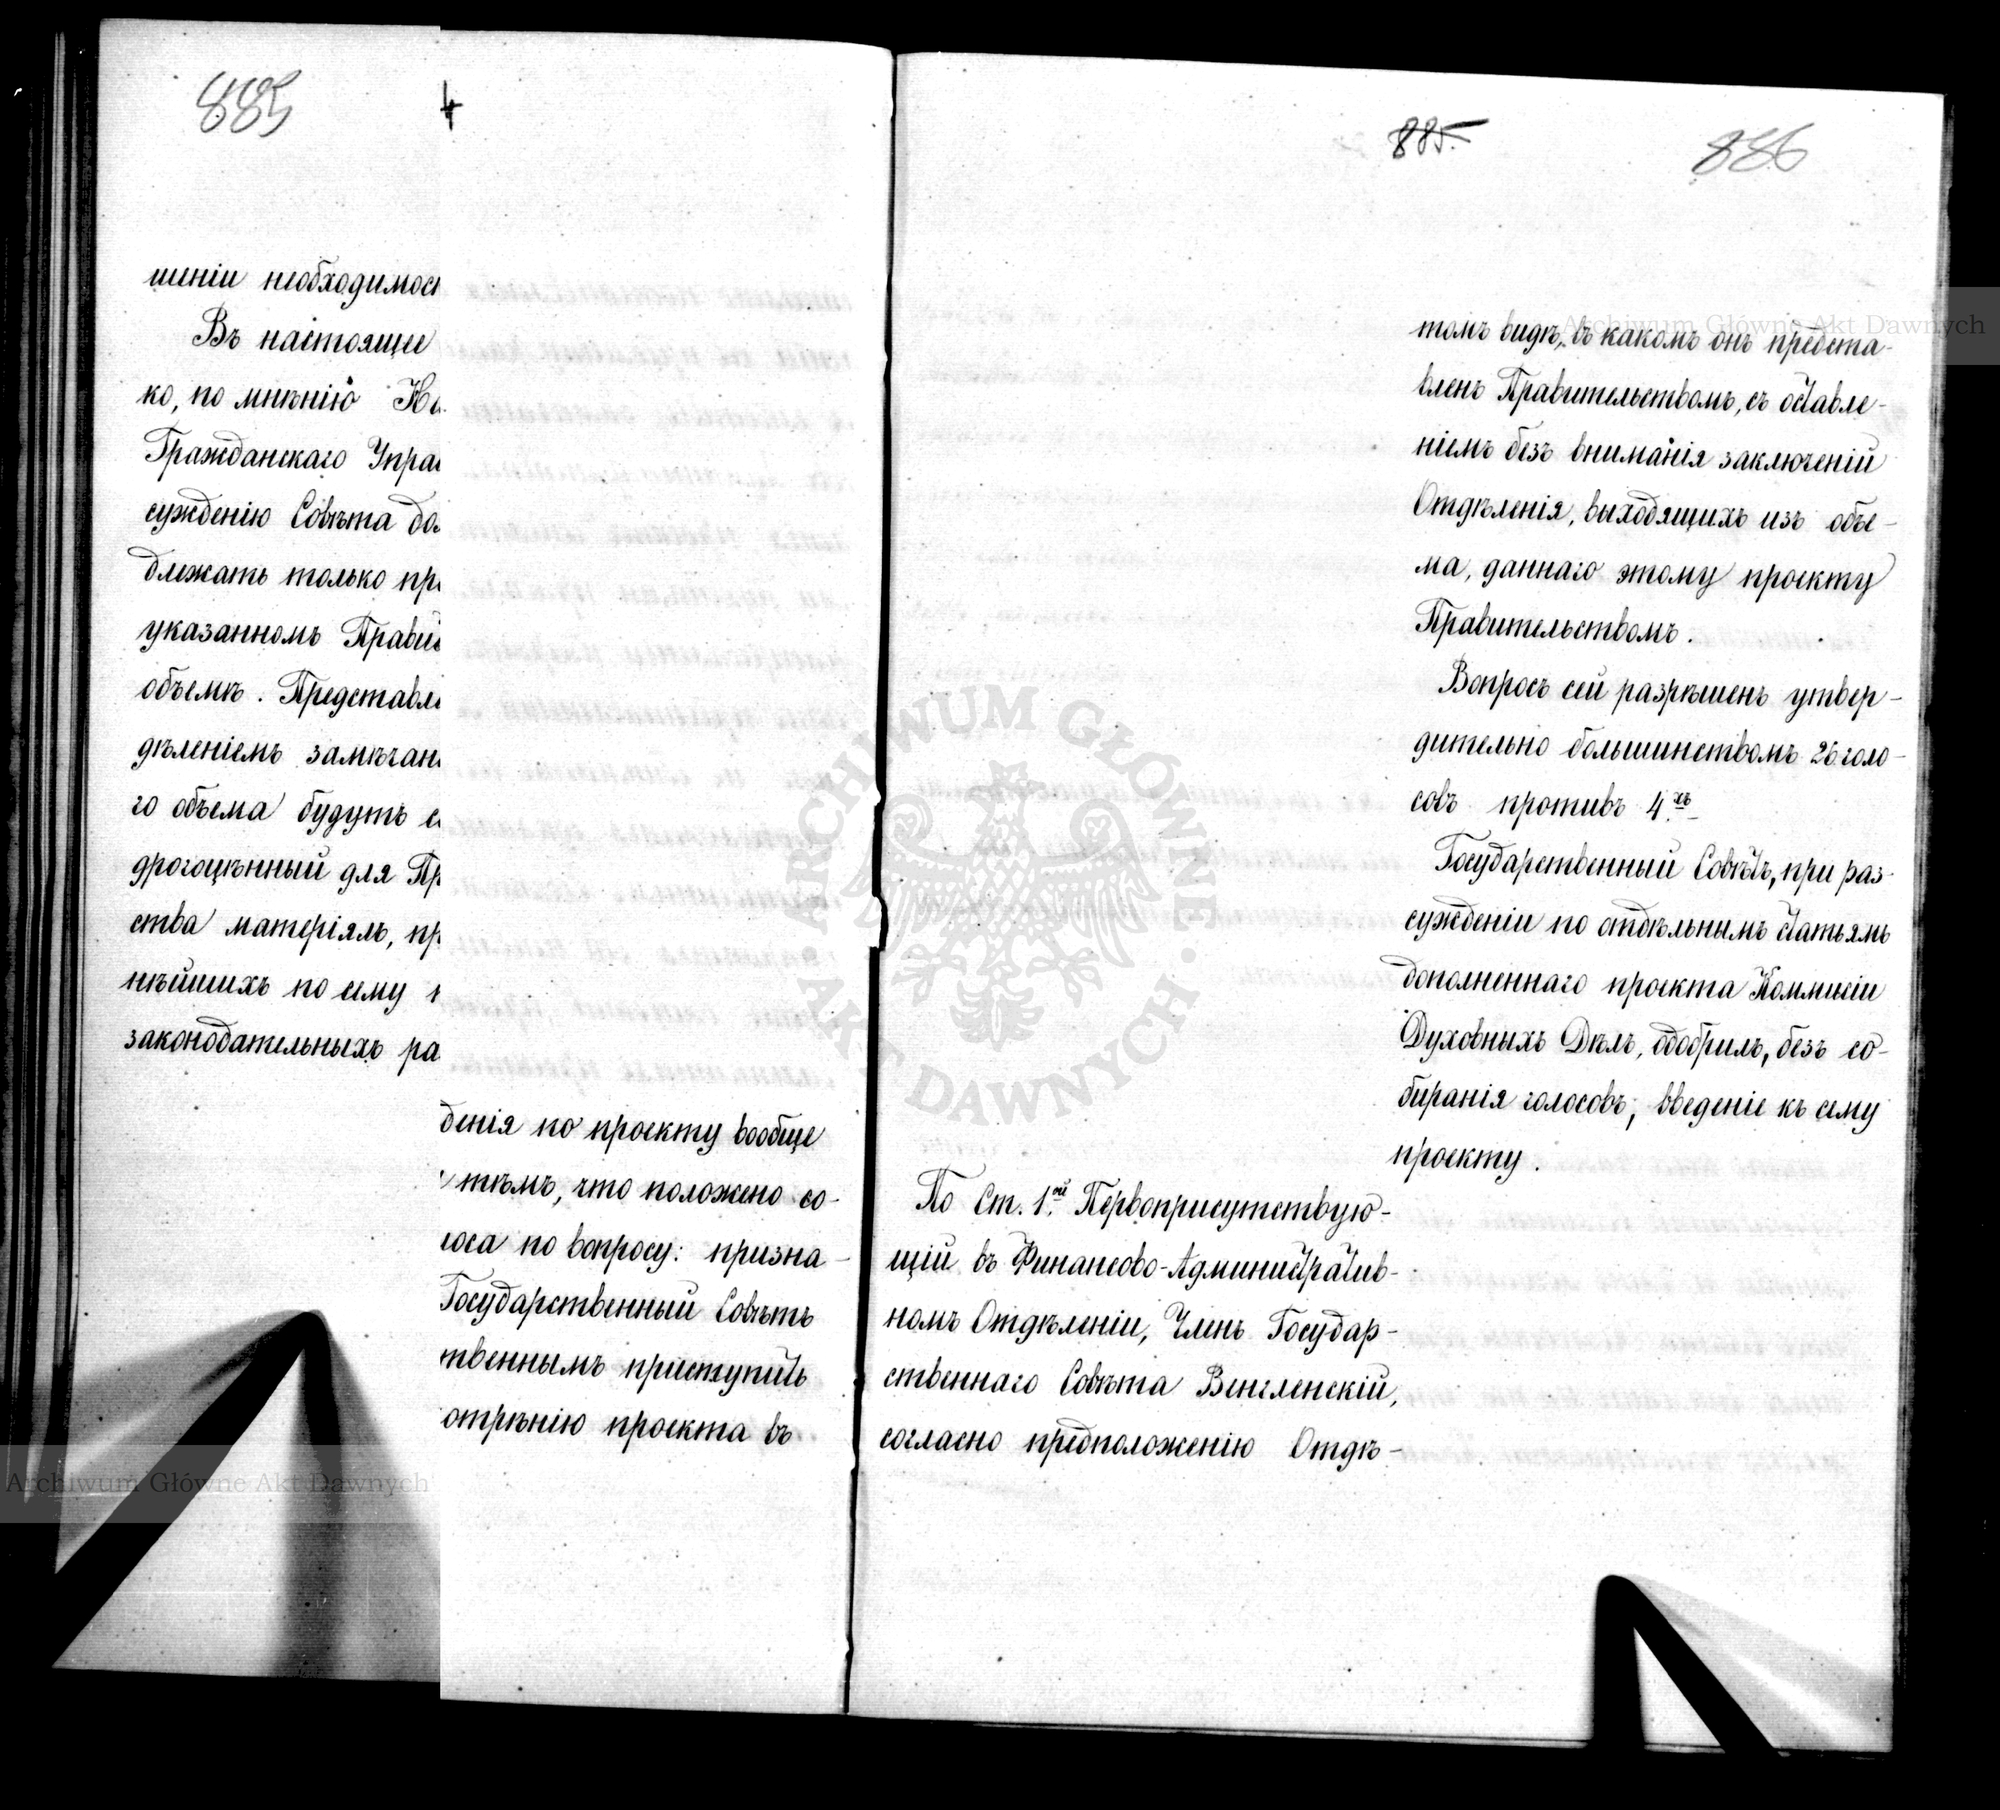 885
шеніи необходимос
Въ настоящее
ко, по мнѣнію На
Гражданскаго Упра
сужденію Совѣта до
длежать только пр
указанномъ Прави
объемѣ. Представле
дѣленіемъ замѣчан
го объема будутъ с
драгоцѣнный для Пр
ства матеріялъ, пр
нѣйшихъ по сему
законодательныхъ ра
4
денія по проекту вообще
тѣмъ, что положено со-
лоса по вопросу: призна-
Государственный Совѣтъ
твеннымъ приступить
отрѣнію проекта въ
885.
886
томъ видѣ, въ какомъ онъ предста-
вленъ Правительствомъ, съ оставле-
ніемъ безъ вниманія заключеній
Отдѣленія, выходящихъ изъ объе-
ма, даннаго этому проекту
Правительствомъ.
Вопросъ сей разрѣшенъ утвер-
дительно большинствомъ 26 голо-
совъ противъ 4хъ
Государственный Совѣтъ, при раз-
сужденіи по отдѣльнымъ статьямъ
дополненнаго проекта Коммисіи
Духовныхъ Дѣлъ, одобрилъ, безъ со-
биранія голосовъ, введеніе къ сему
проекту.
По Ст. 1ой Первоприсутствую-
щій въ Финансово-Административ-
номъ Отдѣленіи, Членъ Государ-
ственнаго Совѣта Венгленскій,
согласно предположенію Отдѣ-
ARCHIWUM GŁÓWNE AKT DAWNYCH
Archiwum Główne Akt Dawnych
Archiwum Główne Akt Dawnych